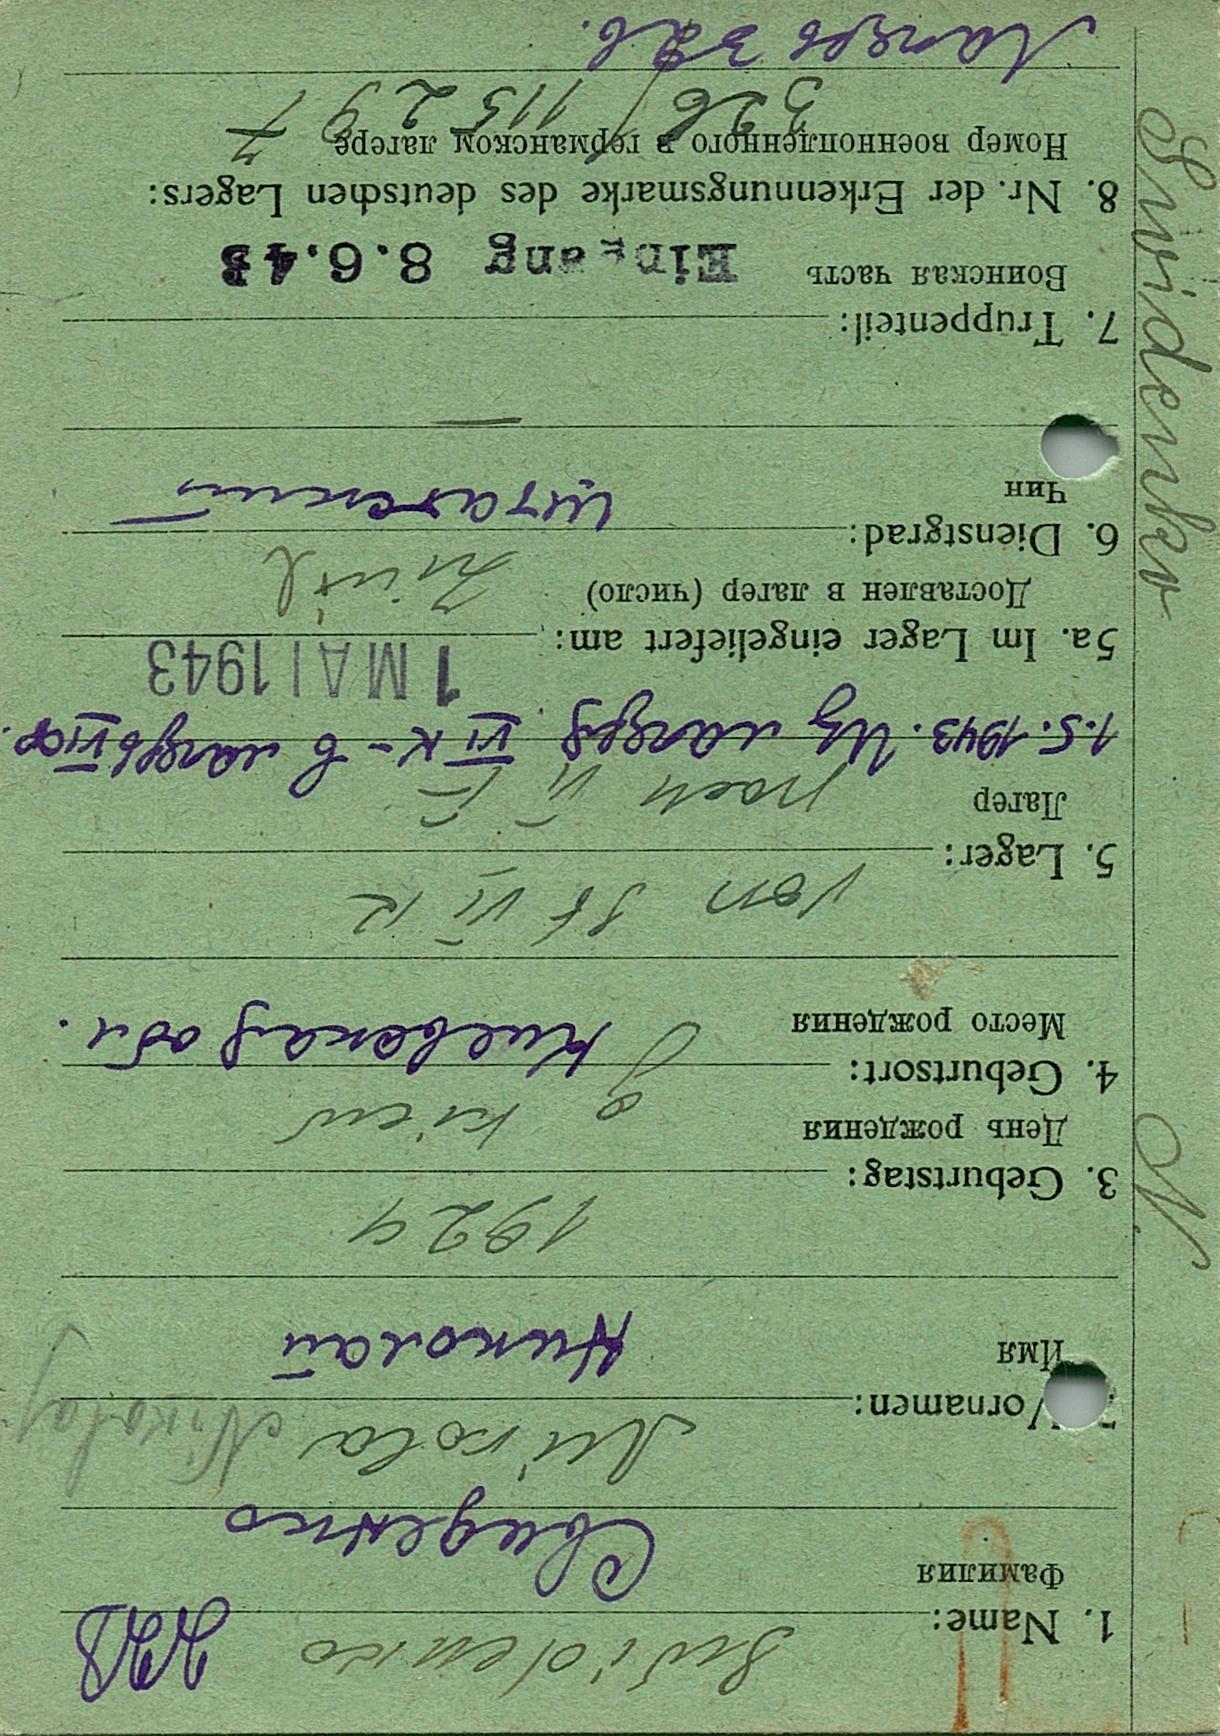 Swidenko N.
1. Name: Swidenko
Фамилия Свиденко
Vornamen: Nikola Nikolaj
Имя Николай
3. Geburtstag: 1924
День рождения
4. Geburtsort: Kiew
Место рождения Киевская обл.
von St VI K
5. Lager:
Лагер nach VI F
1.5.1943. Из лагеря VI К - в лагерь VI Ф.
5a. Im Lager eingeliefert am: 1 MAI 1943
Доставлен в лагер (число)
6. Dienstgrad: Zivil
Чин штатский
7. Truppenteil: —
Воинская часть Eingang 8.6.43
8. Nr. der Erkennungsmarke des deutschen Lagers:
Номер военнопленного в германском лагере
326/115297
Лагерь 326.